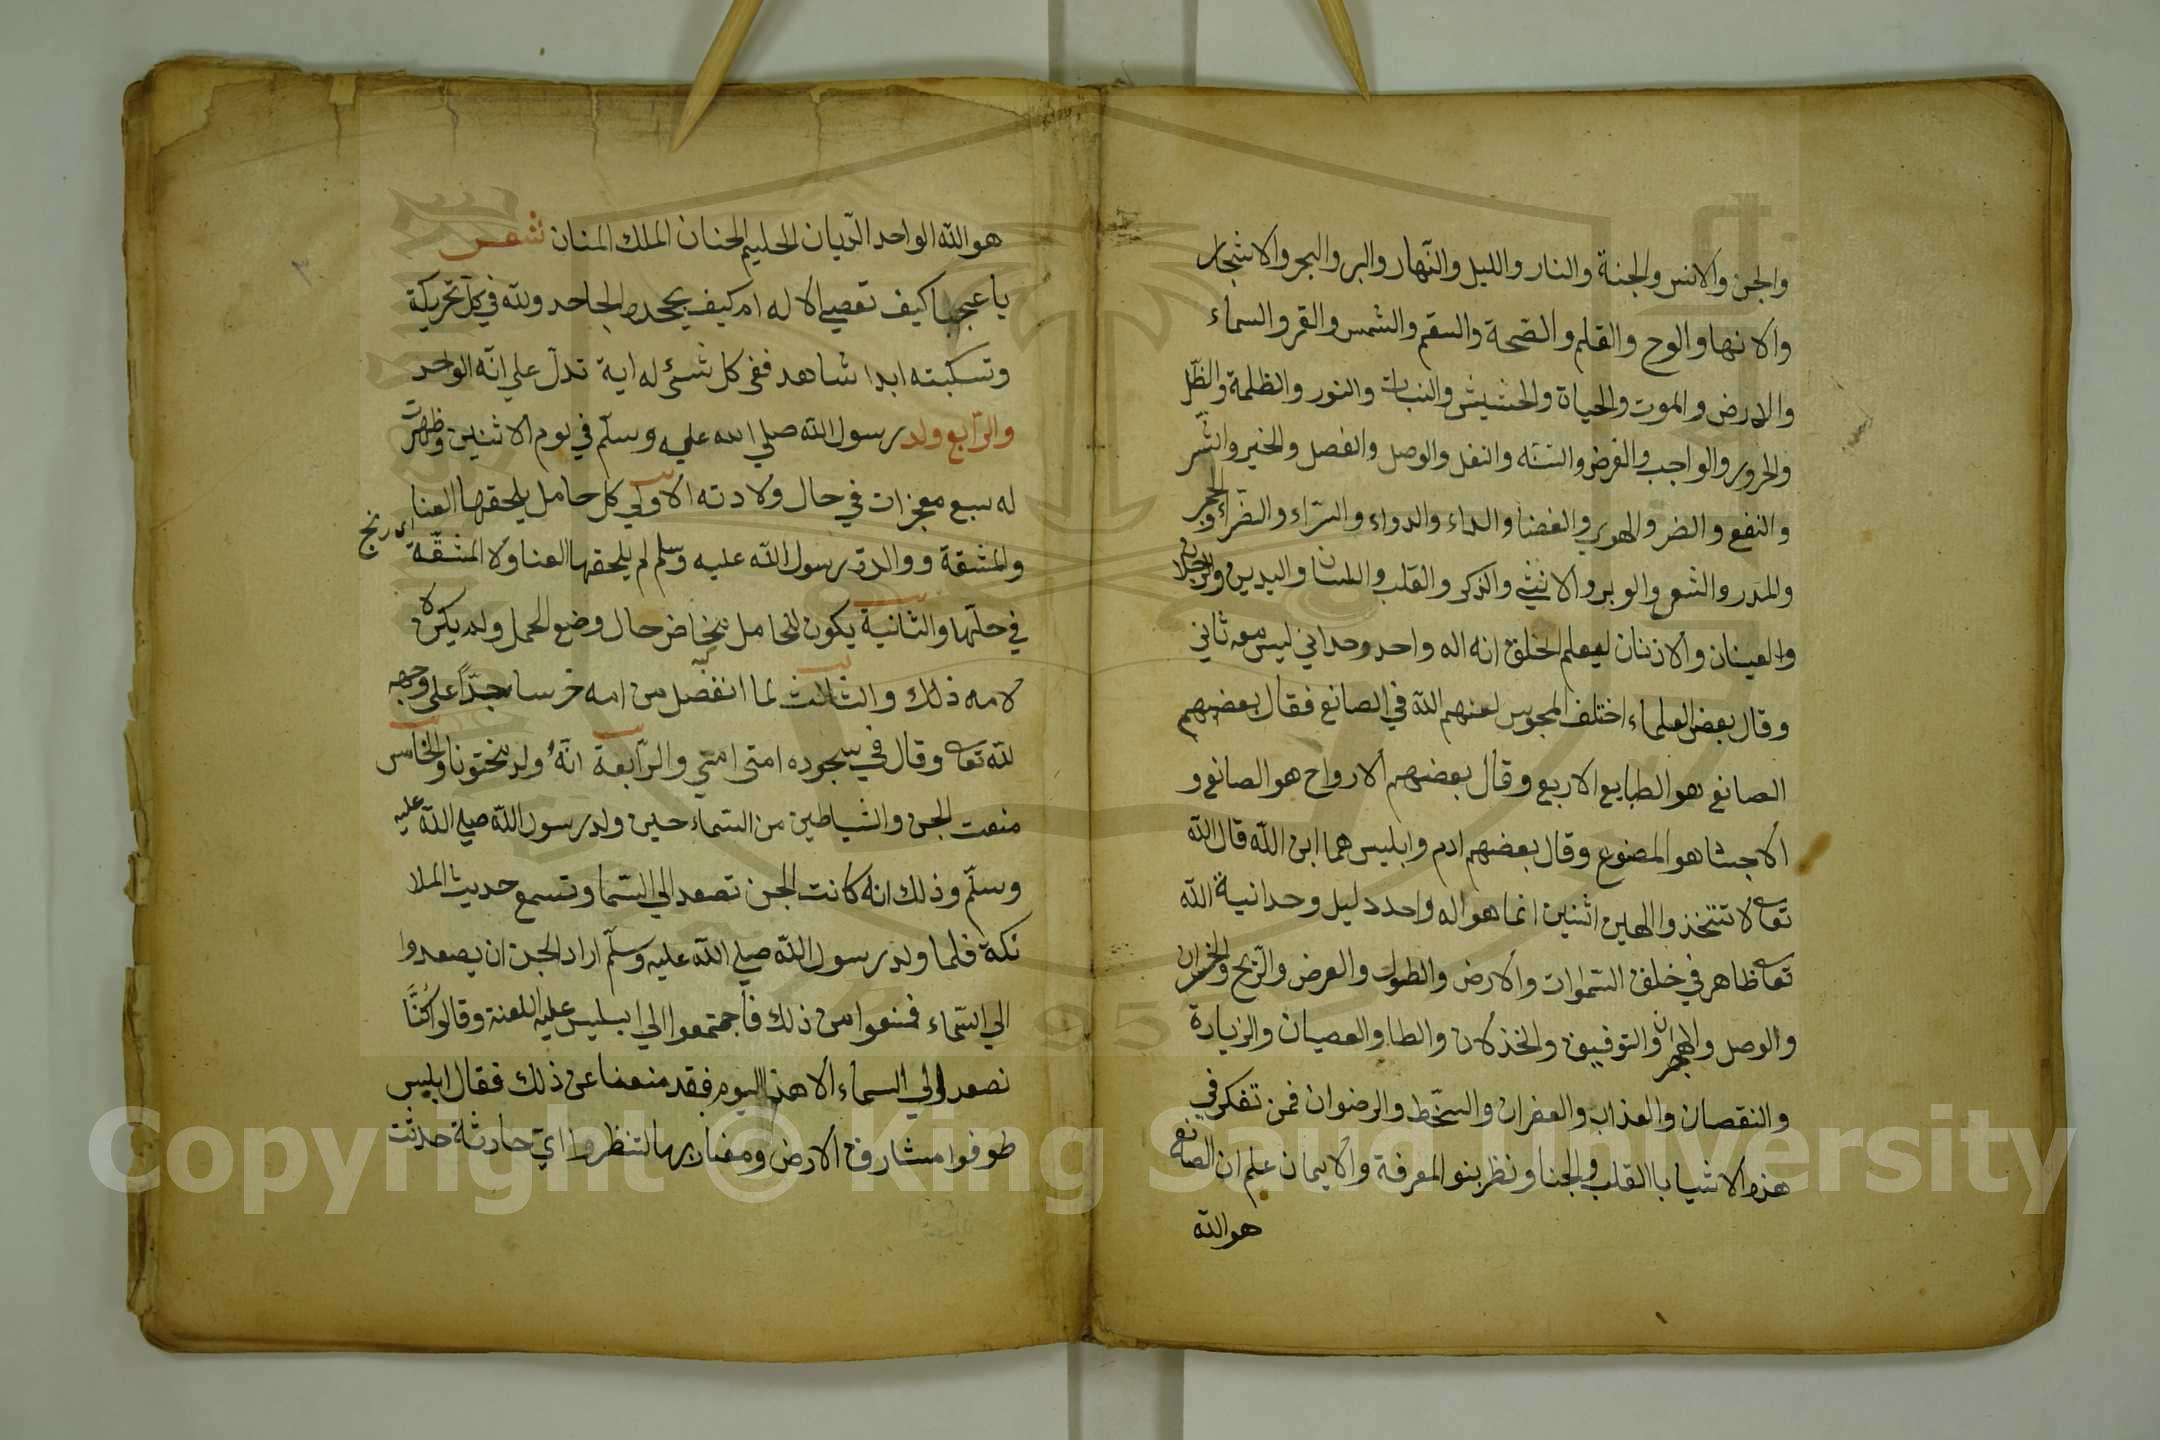 والجن والانس والجنة والنار والليل والنهار والبر والبحر والاشجار
والانهاوالوح والقلم والصحة والسقم والشمس والقمر والسماء
والارض والموت والحياة والحشيش والنبات والنور والظلمة والظل
والحرور والواجب والفرض والسنه والنفل والوصل والفصل والخير والشر
والنفع والضر والهوي والفضا والداء والدواء والسراء والضراء والحجر
والمدر والشعر والوبر والانثي والذكر والقلب واللسان واليدين والرجلان
والعينان والاذنان ليعلم الخلق انه اله واحد وحداني ليس معه ثاني
وقال بعض العلماء اختلف المجوس لعنهم الله في الصانع فقال بعضهم
الصانع هو الطبايع الاربع وقال بعضهم الارواح هو الصانع و
الاجسا هو المصنوع وقال بعضهم ادم وابليس هما ابن الله قال الله
تعا لا تتخذوا الهين اثنين انما هو اله واحد دليل وحدانية الله
تعا ظاهر في خلق السموات والارض والطول والعرض والربح والخسران
والوصل والهجران والتوفيق والخذلان والطا والعصيان والزيارة
والنقصان والعذاب والغفران والسخط والرضوان فمن تفكر في
هذه الاشيا باالقلب والجنا ونظر بنو المعرفة والايمان علم ان الصانع
هو الله
هو الله الواحد الديان الحليم الحنان الملك المنان شعر
يا عجبا كيف تعصي الاله ام كيف يجحده الجاحد ولله في كل تحريكة
وتسكينته ابدا شاهد ففي كل شئ له اية تدل علي انه الواحد
والرابع ولد رسول الله صلي الله عليه وسلم في يوم الاثنين وظهرت
له سبع معجزات في حال ولادته الاولي كل حامل يلحقها العنا
اي رنج
والمشقة ووالدة رسول الله عليه وسلم لم يلحقها العنا ولا المشقة
في حلها والثانية يكون للحامل مخاض حال وضع الحمل ولم يكن
لامه ذلك والثالث لما انفصل من امه خر ساجدا علي وجهه
لله تعا وقال في سجوده امتي امتي والرابعة انه ولد مختونا والخامس
منعت الجن والشياطين من السماء حين ولد رسول الله صلي الله عليه
وسلم وذلك انه كانت الجن تصعد الي السما وتسمع حديث الملا
ئكة فلما ولد رسول الله صلي الله عليه وسلم اراد الجن ان يصعدوا
الي السماء فمنعوا من ذلك فاجتمعوا الي ابليس عليه اللعنة وقالوا كنا
نصعد الي السماء الا هذا اليوم فقد منعنا عن ذلك فقال ابليس
طوفوا مشارق الارض ومغاربها لتنظروا اي حادثة حدثت
Copyright © King Saud University